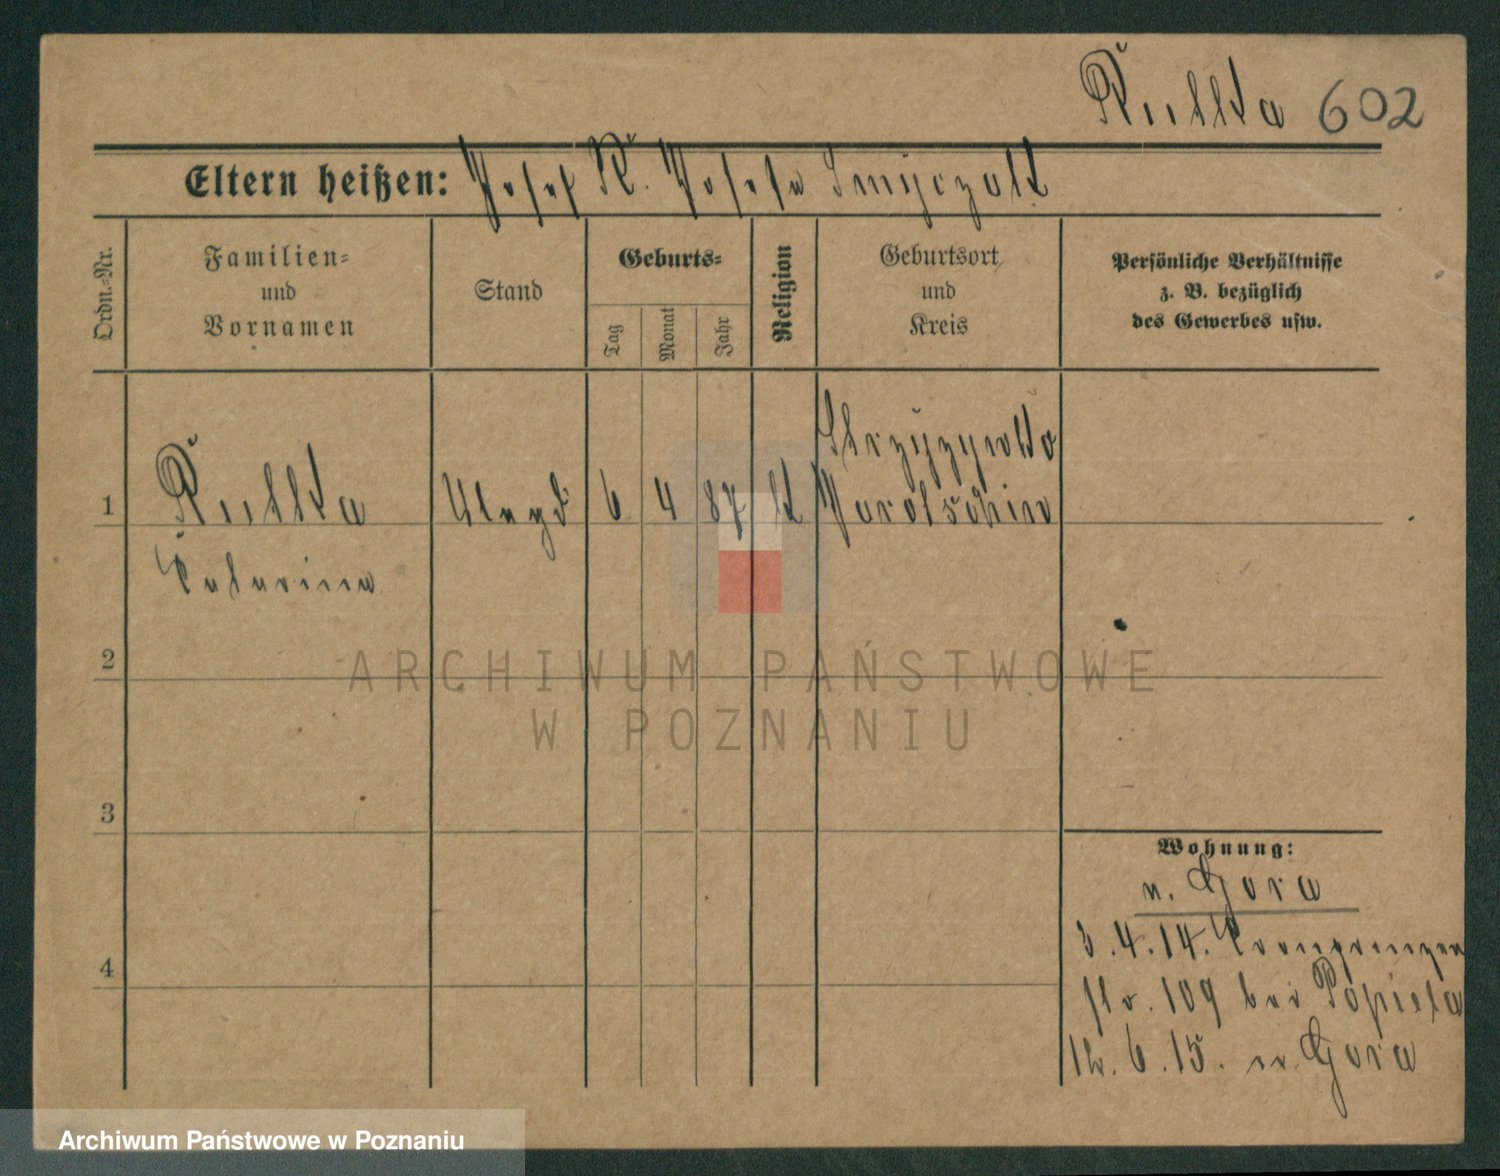 602
Eltern heißen: Josef K. Josefa
Ordn.-Nr.
Familien-
und
Vornamen
Stand
Geburts-
Tag
Monat
Jahr
Religion
Geburtsort
und
Kreis
Persönliche Verhältnisse
z. B. bezüglich
des Gewerbes usw.
1
6 4 87 k
Jarotschin
Katarina
2
ARCHIWUM PAŃSTWOWE
W POZNANIU
3
Wohnung:
n. Gora
3.4.14. Kronprinzen
str. 109 bei Popiela
12.6.15. n. Gora
4
Archiwum Państwowe w Poznaniu